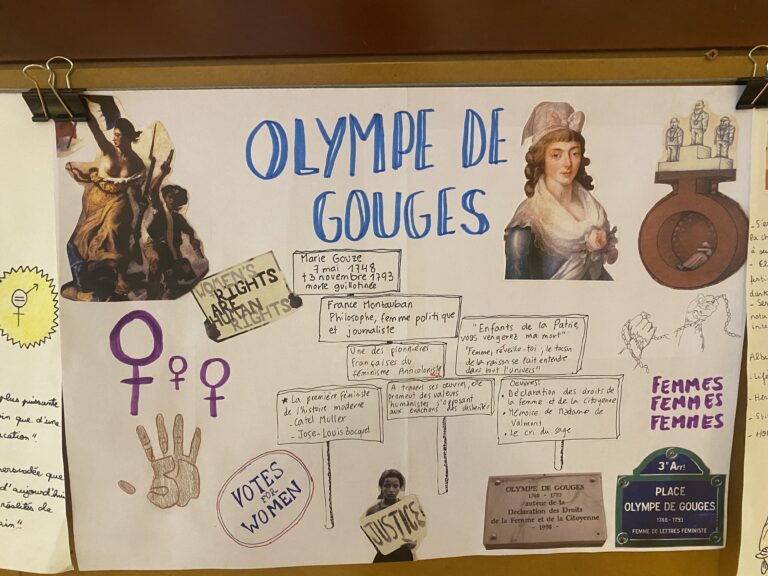 OLYMPE DE
GOUGES
WOMEN'S
RIGHTS
ARE
HUMAN
RIGHTS
Marie Gouze
7 mai 1748
† 3 novembre 1793
morte guillotinée
France Montauban
Philosophe, femme politique
et journaliste
Une des pionnières
Françaises du
féminisme Anticoloniste
"Enfants de la Patrie,
vous vengerez ma mort"
"Femme, réveille-toi ; le tocsin
de la raison se fait entendre
dans tout l'univers"
* La première féministe
de l'histoire moderne
- Catel Muller
- Jose-Louis Bocquet
A travers ses œuvres, elle
promeut des valeurs
humanistes s'opposant
aux exactions des
Oeuvres:
• Déclaration des droits de
la femme et de la citoyenne
• Mémoire de Madame de
Valmont
• Le cri du sage
FEMMES
FEMMES
FEMMES
VOTES
FOR
WOMEN
JUSTICE!
OLYMPE DE GOUGES
1748 - 1793
auteur de la
Déclaration des Droits
de la Femme et de la Citoyenne
- 1998 -
3e Arrt
PLACE
OLYMPE DE GOUGES
1748 - 1793
FEMME DE LETTRES FÉMINISTE
plus puissante
que d'une
persuadée que
d'aujourd'hui
réalités de